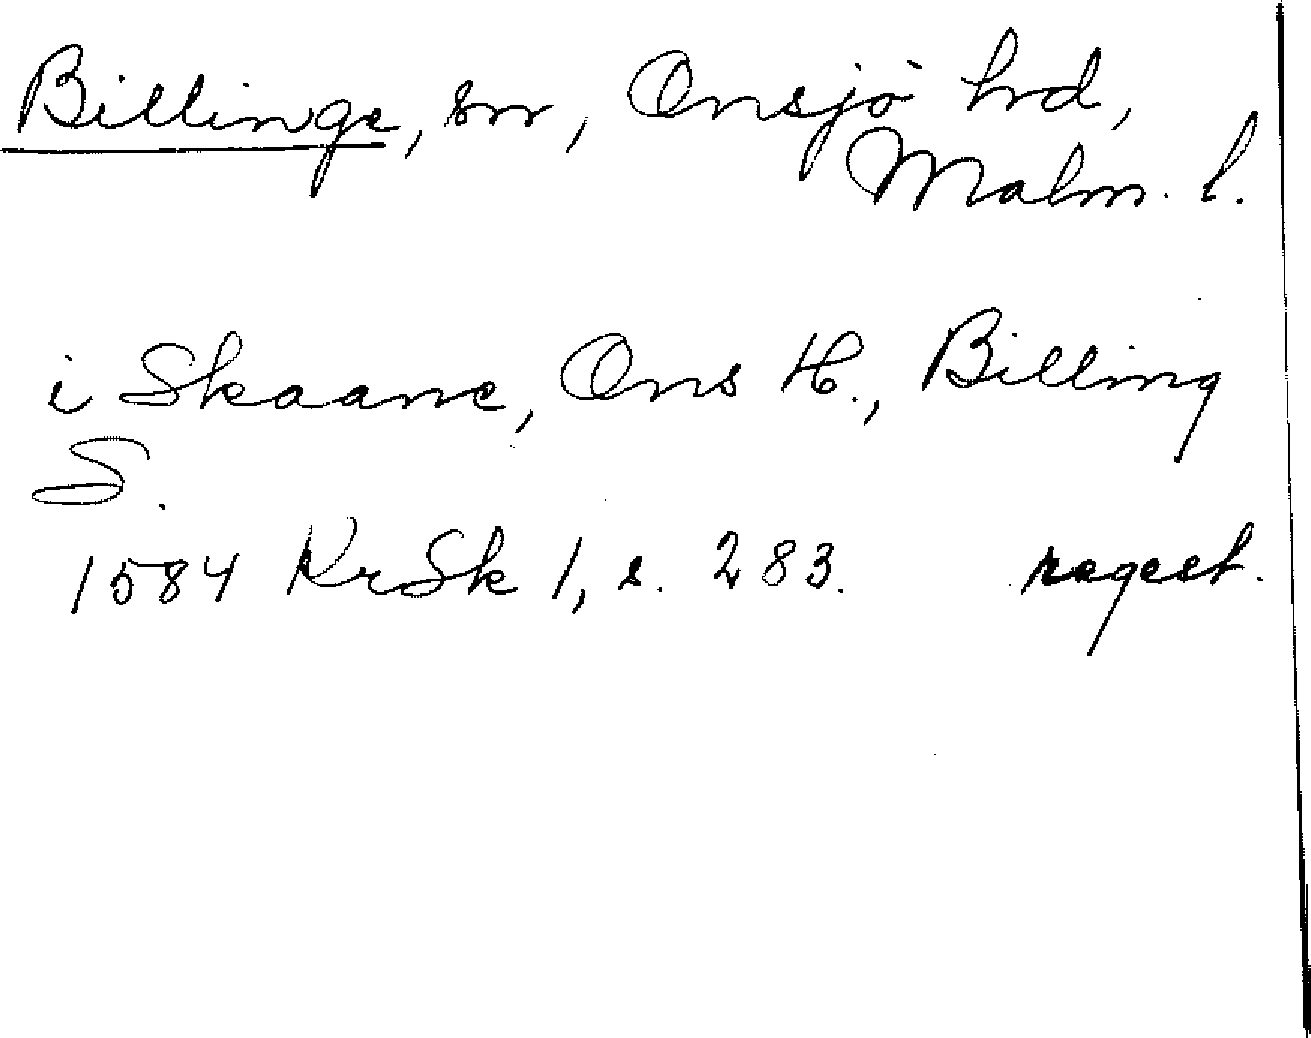 Billinge, sn, Onsjö hrd,
Malm. l.
i Skaane, Ons H., Billing
S.
1584 KrSk 1, s. 283. regest.